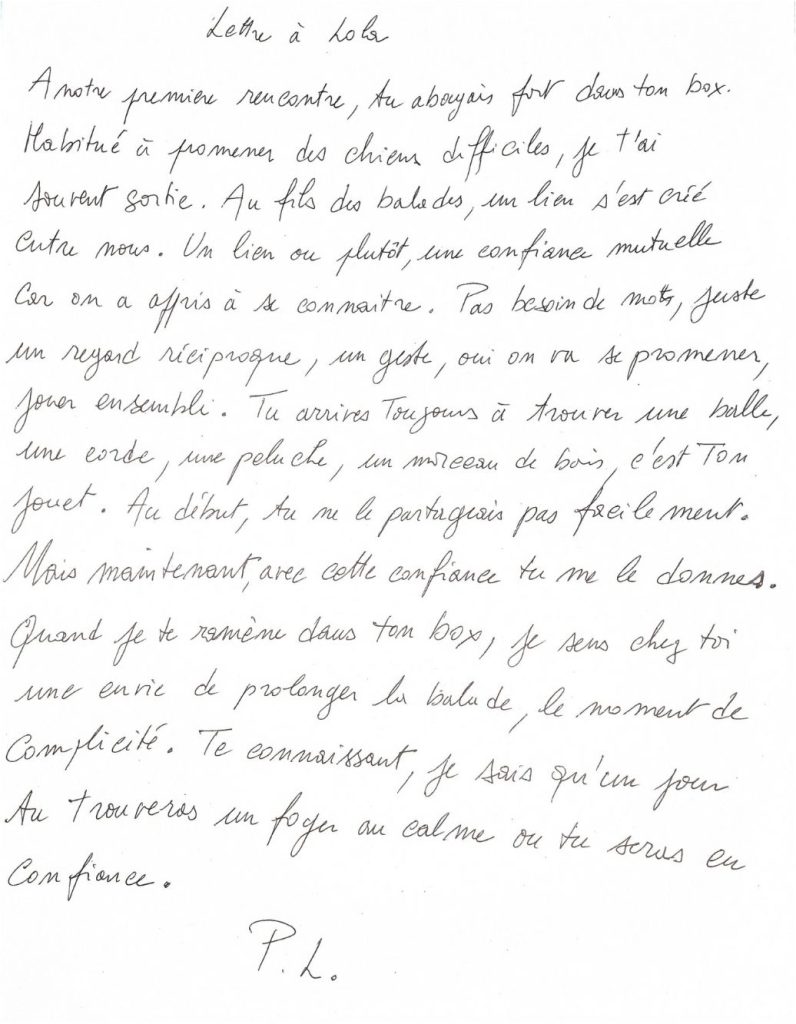 Lettre à Lola
A notre premiere rencontre, tu aboyais fort dans ton box.
Habitué à promener des chiens difficiles, je t'ai
souvent sortie. Au fils des balades, un lien s'est créé
entre nous. Un lien ou plutôt, une confiance mutuelle
Car on a appris à se connaitre. Pas besoin de mots, juste
un regard réciproque, un geste, oui on va se promener,
jouer ensemble. Tu arrives Toujours à trouver une balle,
une corde, une peluche, un morceau de bois, c'est Ton
jouet. Au début, tu ne le partageais pas facilement.
Mais maintenant, avec cette confiance tu me le donnes.
Quand je te ramène dans ton box, je sens chez toi
une envie de prolonger la balade, le moment de
Complicité. Te connaissant, je sais qu'un jour
tu Trouveras un foyer au calme ou tu seras en
Confiance.
P.L.